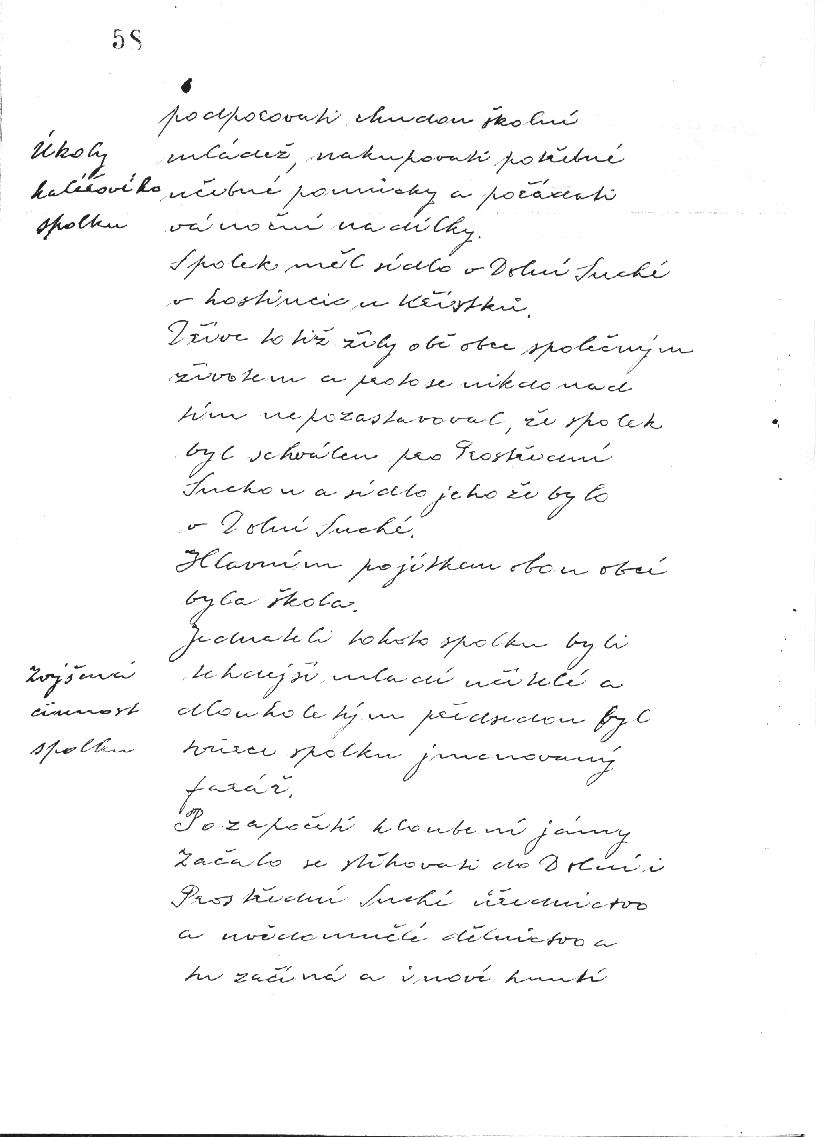 58
podporovati chudou školní
Úkoly
haléřového
spolku
mládež, nakupovati potřebné
učebné pomůcky a pořádati
vánoční nadílky.
Spolek měl sídlo v Dolní Suché
v hostinci u Křístků.
Dříve totiž žily obě obce společným
životem a proto se nikdo nad
tím nepozastavoval, že spolek
byl schválen pro Prostřední
Suchou a sídlo jeho že bylo
v Dolní Suché.
Hlavním pojítkem obou obcí
byla škola.
Jednateli tohoto spolku byli
Zvýšená
činnost
spolku
tehdejší mladí učitelé a
dlouholetým předsedou byl
tvůrce spolku jmenovaný
farář.
Po započetí hloubení jámy
začalo se stěhovati do Dolní i
Prostřední Suché úřednictvo
a uvědomnělé dělnictvo a
tu začíná a i nové hnutí